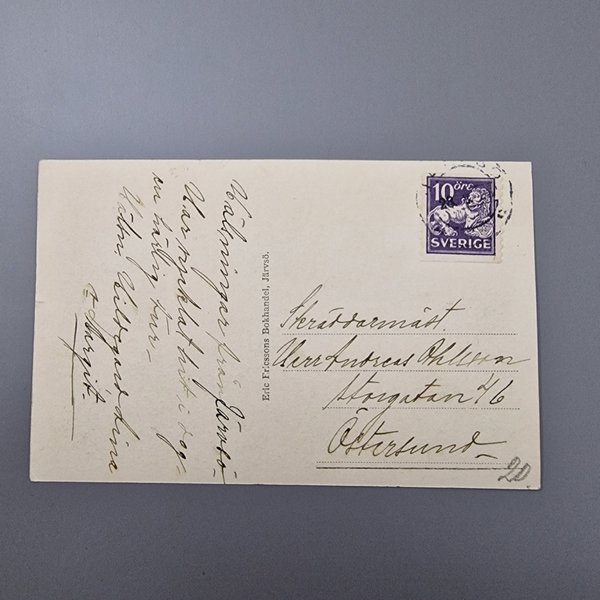 Hälsningar från Järvsö.
Har cyklat hit i dag.
en härlig tur.
Hildegard Lina
& Margit.
Eric Ericssons Bokhandel, Järvsö.
10 öre
SVERIGE
Skräddarmäst.
Herr Andreas Ohlsson
Storgatan
Östersund
20